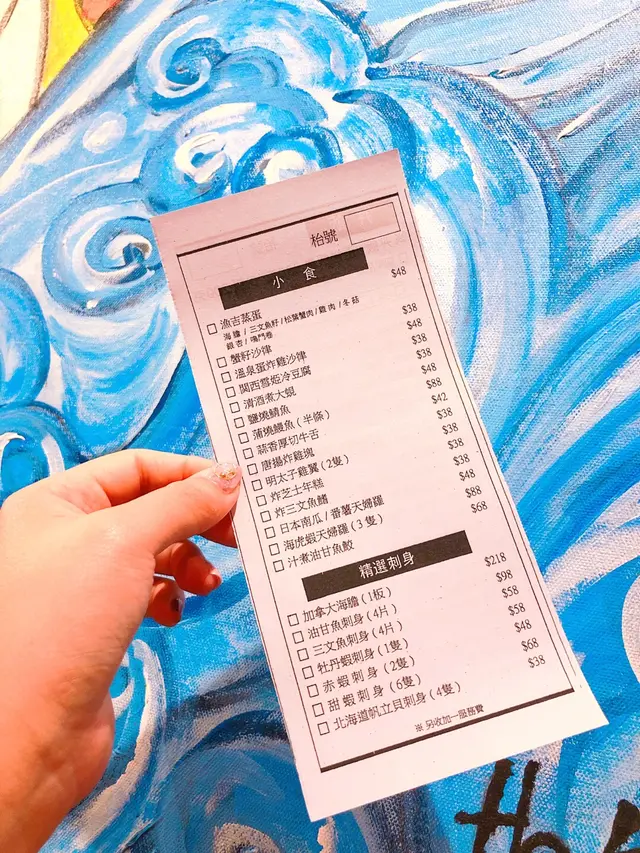 枱號
小 食
漁吉蒸蛋 $48
海膽 / 三文魚籽 / 松葉蟹肉 / 雞肉 / 冬菇
銀杏 / 鳴門卷
蟹籽沙律 $38
溫泉蛋炸雞沙律 $48
関西雪姫冷豆腐 $38
清酒煮大蜆 $38
鹽燒鯖魚 $48
蒲燒鰻魚(半條) $88
蒜香厚切牛舌 $42
唐揚炸雞塊 $38
明太子雞翼(2隻) $38
炸芝士年糕 $38
炸三文魚鰭 $38
日本南瓜 / 番薯天婦羅 $48
海虎蝦天婦羅(3隻) $88
汁煮油甘魚鮫 $68
精選刺身
加拿大海膽(1板) $218
油甘魚刺身(4片) $98
三文魚刺身(4片) $58
牡丹蝦刺身(1隻) $58
赤蝦刺身(2隻) $48
甜蝦刺身(6隻) $68
北海道帆立貝刺身(4隻) $38
※ 另收加一服務費